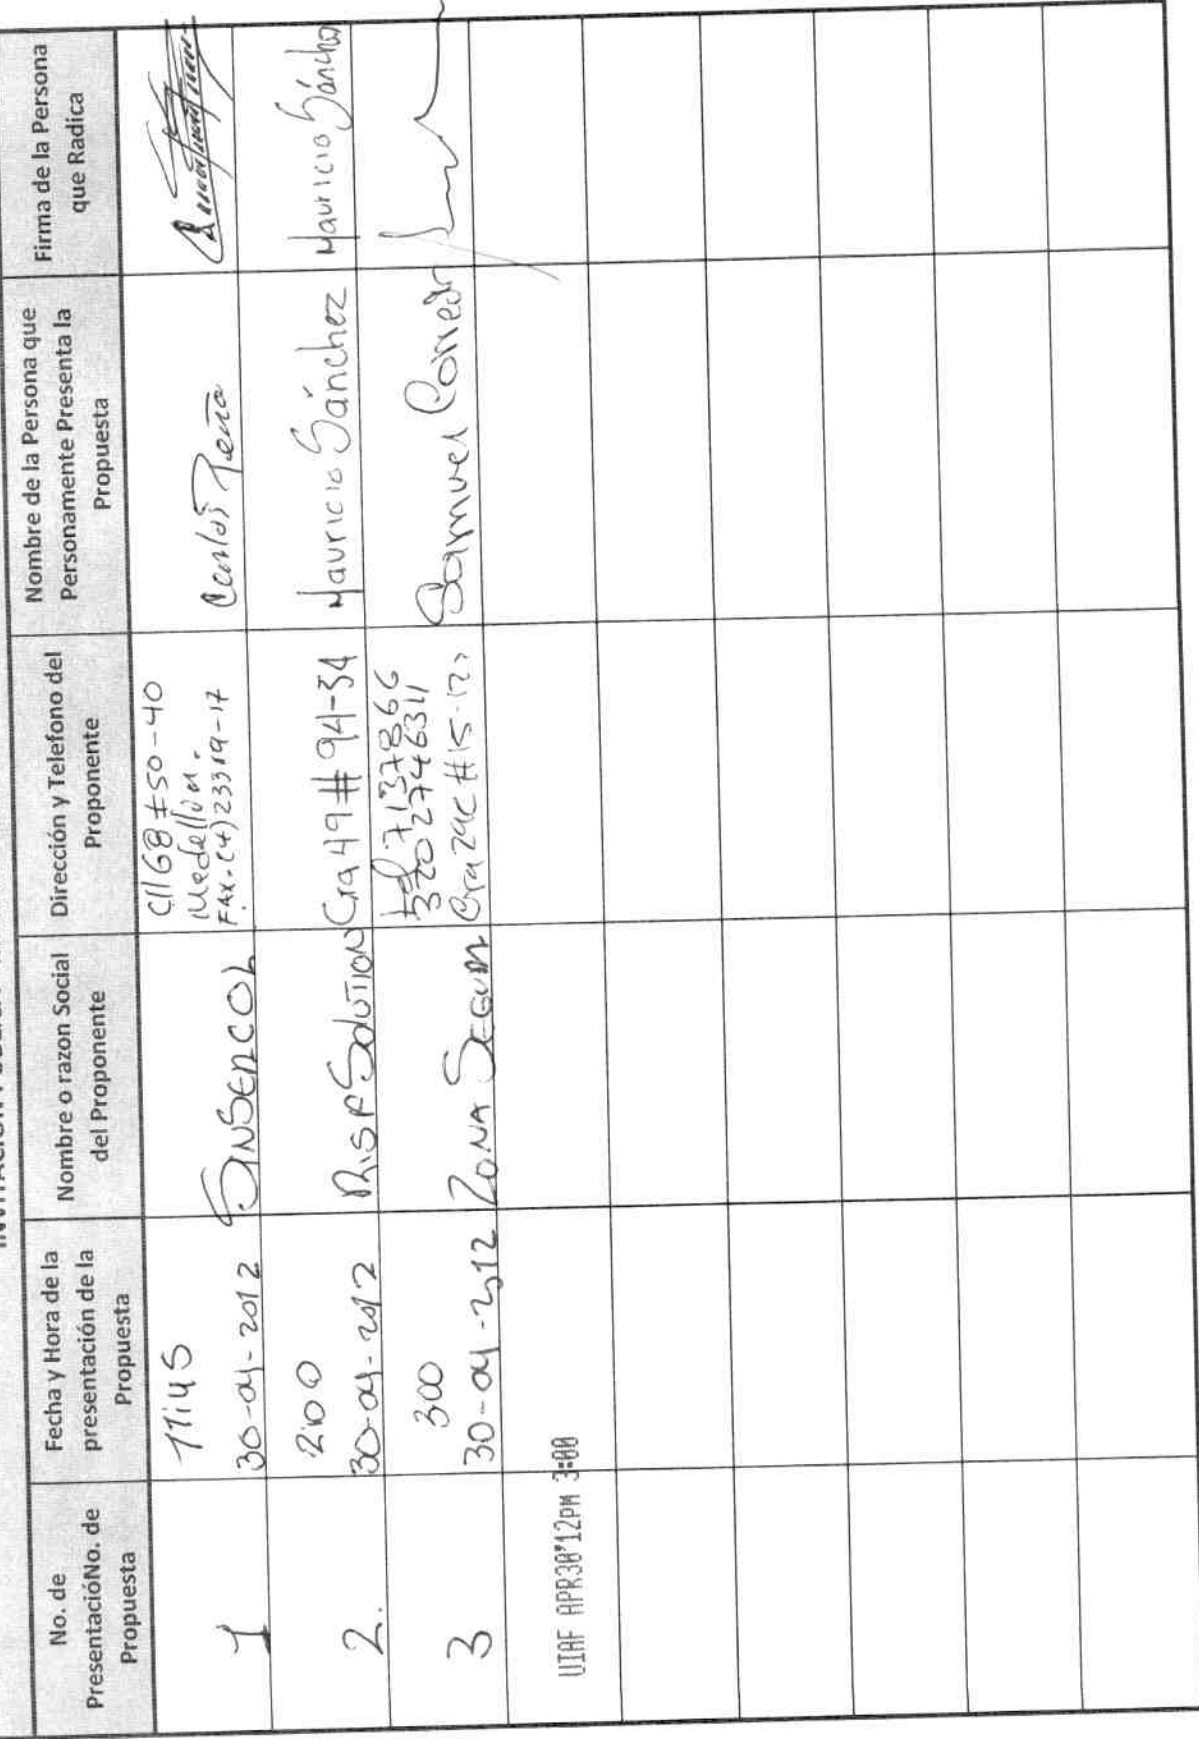 No. de
PresentacióNo. de
Propuesta
Fecha y Hora de la
presentación de la
Propuesta
Nombre o razon Social
del Proponente
Dirección y Telefono del
Proponente
Nombre de la Persona que
Personamente Presenta la
Propuesta
Firma de la Persona
que Radica
1
11:45
30-04-2012
SINSERCOL
Cll 6B #50-40
Medellín.
FAX-(4)23319-17
Carlos Peña
2.
2:00
30-04-2012
RISF SOLUTION
Cra 49 # 94-34
Mauricio Sánchez
Mauricio Sánchez
3
3:00
30-04-2012
ZONA SEGURA
tel 7137866
3202746311
Cra 29C #15-12
Samuel
UIAF APR30'12PM 3:00